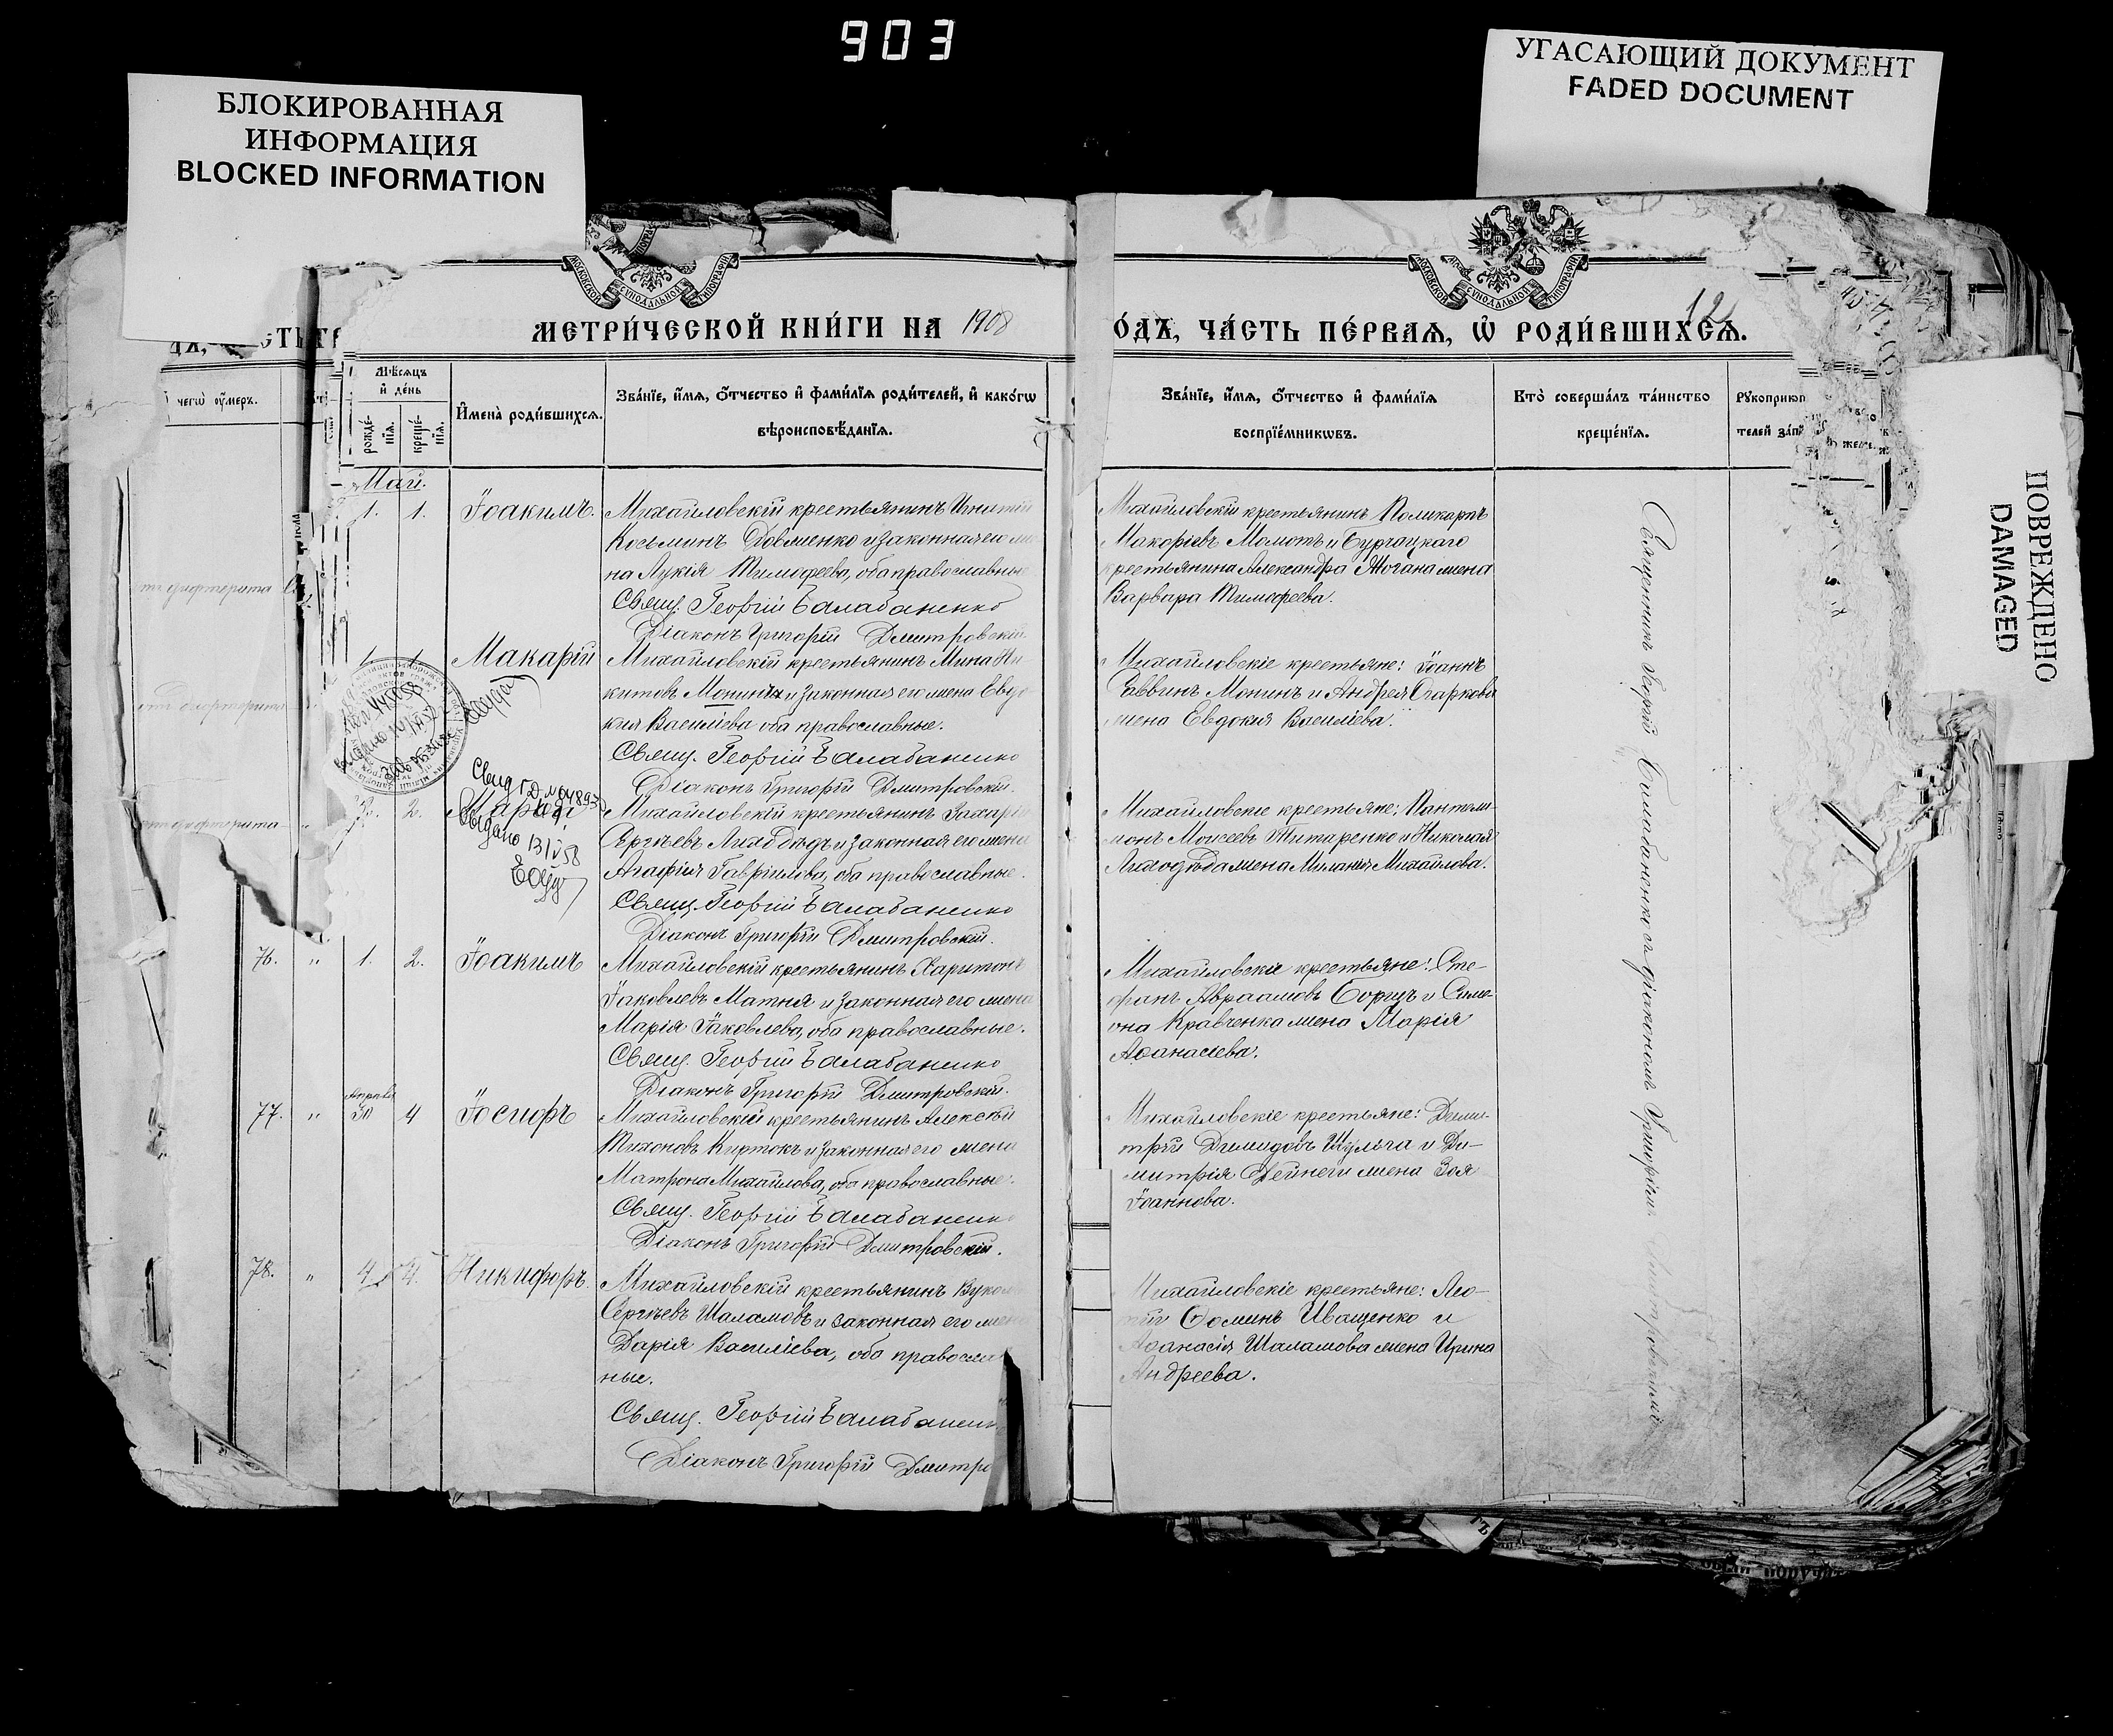 903
БЛОКИРОВАННАЯ
ИНФОРМАЦИЯ
BLOCKED INFORMATION
УГАСАЮЩИЙ ДОКУМЕНТ
FADED DOCUMENT
ПОВРЕЖДЕНО
DAMAGED
МОСКОВСКОЙ СѴНОДАЛЬНОЙ ТИПОГРАФІИ
МОСКОВСКОЙ СѴНОДАЛЬНОЙ ТИПОГРАФІИ
МЕТРИ́ЧЕСКОЙ КНИ́ГИ НА 1908
О́ДЪ, ЧА́СТЬ ПЕ́РВАЯ, Ѡ҆ РОДИ́ВШИХСЯ.
чегѡ̀ оу҆́меръ.
Мѣ́сяцъ
и҆ де́нь
рожде́-
нїя.
креще́-
нїя.
И҆мена̀ роди́вшихся.
Зва́нїе, и҆́мя, ѻ҆́тчество и҆ фами́лїя роди́телей, и҆ како́гѡ
вѣроисповѣ́данїя.
Зва́нїе, и҆́мя, ѻ҆́тчество и҆ фами́лїя
воспрїе́мникѡвъ.
Кто̀ соверша́лъ та́инство
креще́нїя.
Май.
1. 1. Іоакимъ.
Михайловскій крестьянинъ
Косьминъ Довженко и законная его
на Лукія Тимофеева, оба православные
Свящ. Георгій Балабаненко
Діаконъ Григорій Дмитровскій.
Михайловскій крестьянинъ Поликарпъ
Макаріевъ Молотъ и Бурчацкаго
крестьянина Александра жена
Варвара Тимофеева.
Макарій
Михайловскій крестьянинъ Мина Ни
китовъ Монинъ и законная его жена Евдо
кия Василіева оба православные.
Свящ. Георгій Балабаненко
Діаконъ Григорій Дмитровскій.
Михайловскіе крестьяне: Іоаннъ
Саввинъ Монинъ и Андрея Огаркова
жена Евдокия Василіева.
Выдано 13/V 58
2. Марія
Михайловскій крестьянинъ Захарія
Сергѣевъ Лиходѣдъ и законная его жена
Агафія Гавріилова, оба православные.
Свящ. Георгій Балабаненко
Діаконъ Григорій Дмитровскій.
Михайловскіе крестьяне: Пантели-
монъ Моисеевъ Титаренко и Николая
Лиходѣда жена Миланія Михайлова.
76. " 1. 2. Іоакимъ
Михайловскій крестьянинъ Харитонъ
Іаковлевъ Матня и законная его жена
Марія Іаковлева, оба православные.
Свящ. Георгій Балабаненко
Діаконъ Григорій Дмитровскій.
Михайловскіе крестьяне: Сте-
фанъ Авраамовъ Борщъ и Симе-
она Кравченка жена Марія
Аѳанасіева.
77. " Апрѣля 30 4 Іосифъ
Михайловскій крестьянинъ Алексѣй
Тихоновъ Киртокъ и законная его жена
Матрона Михайлова, оба православные.
Свящ. Георгій Балабаненко
Діаконъ Григорій Дмитровскій.
Михайловскіе крестьяне: Дими-
трій Димидовъ Шульга и Ди-
митрія Дейнеги жена Зоя
Іоаннова.
78. " 4 4. Никифоръ.
Михайловскій крестьянинъ Вукол
Сергѣевъ Шаламовъ и законная его жена
Дарія Василіева, оба православ
ные.
Свящ. Георгій Балабаненк
Діаконъ Григорій Дмитро
Михайловскіе крестьяне:
Ѳоминъ Иващенко и
Аѳанасія Шаламова жена Ирина
Андреева.
Священникъ Георгій Балабаненко съ діакономъ Григоріемъ Дмитровскимъ